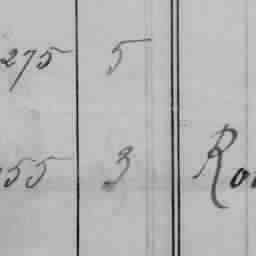 275 5
55 3